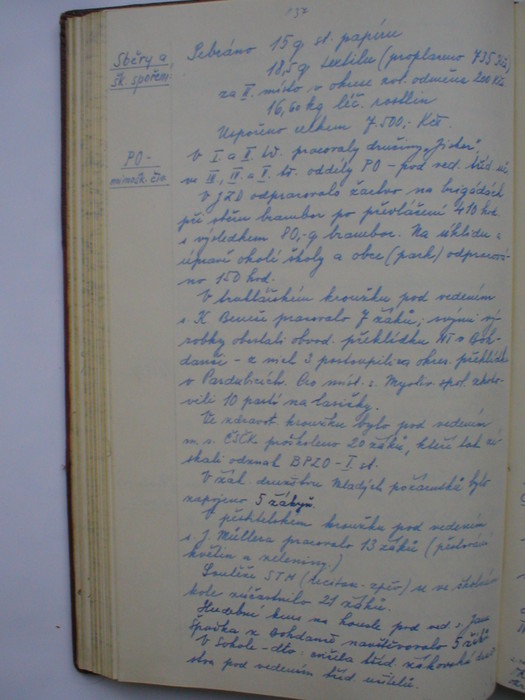 137
Sběry a
šk. spoření.
Sebráno 15 q st. papíru
18,5 q textilu (proplaceno 735 Kčs)
za II. místo v okrese zvl. odměna 200 Kčs
16,60 kg léč. rostlin
Uspořeno celkem 7 500,- Kčs.
PO -
mimošk. čin.
V I. a II. tř. pracovaly družiny „Jisker",
ve III., IV. a V. tř. oddíly PO - pod ved. tříd. uč.
V JZD odpracovalo žactvo na brigádách
při sběru brambor po převláčení 410 hod.
s výsledkem 80,- q brambor. Na úklidu a
úpravě okolí školy a obce (park) odpracová-
no 150 hod.
V kroužku pod vedením
s. K. pracovalo 7 žáků; svými vý-
robky obeslali obvod. přehlídku v Boh-
danči - z nich 3 postoupili na okres. přehlídku
v Pardubicích. Pro míst. s. Mysliv. spol. zhoto-
vili 10 pastí na lasičky.
Ve zdravot. kroužku bylo pod vedením
m. s. ČSČK proškoleno 20 žáků, kteří tak zí-
skali odznak BPZO - I. st.
V žák. družstvu Mladých požárníků bylo
zapojeno 5 žáků.
V pěstitelském kroužku pod vedením
s. J. Müllera pracovalo 13 žáků (pěstování
květin a zeleniny)
Soutěže STM (recitace - zpěv) se ve školním
kole zúčastnilo 21 žáků.
Hudební kurs na housle pod ved. s. Jana
z Bohdanče navštěvovalo 5 žáků
V Sokole - cvičila tříd. žákovská
pod vedením tříd. učitelů.